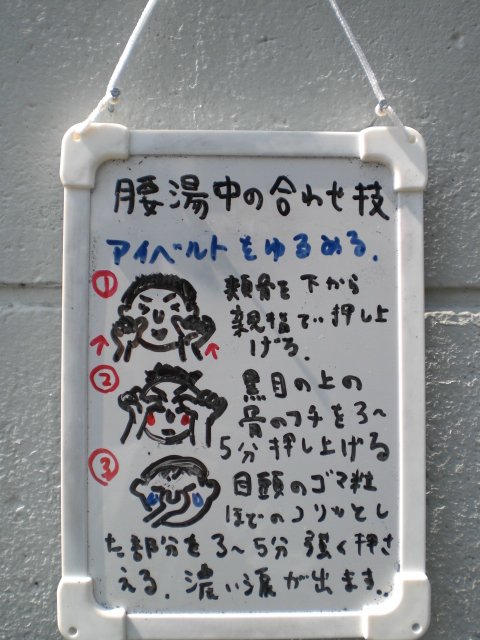 腰湯中の合わせ技
アイベルトをゆるめる.
① 頬骨を下から
親指で押し上
げる.
② 黒目の上の
骨のフチを3~
5分押し上げる
③ 目頭のゴマ粒
ほどのコリッとし
た部分を3~5分強く押さ
える.濃い涙が出ます.